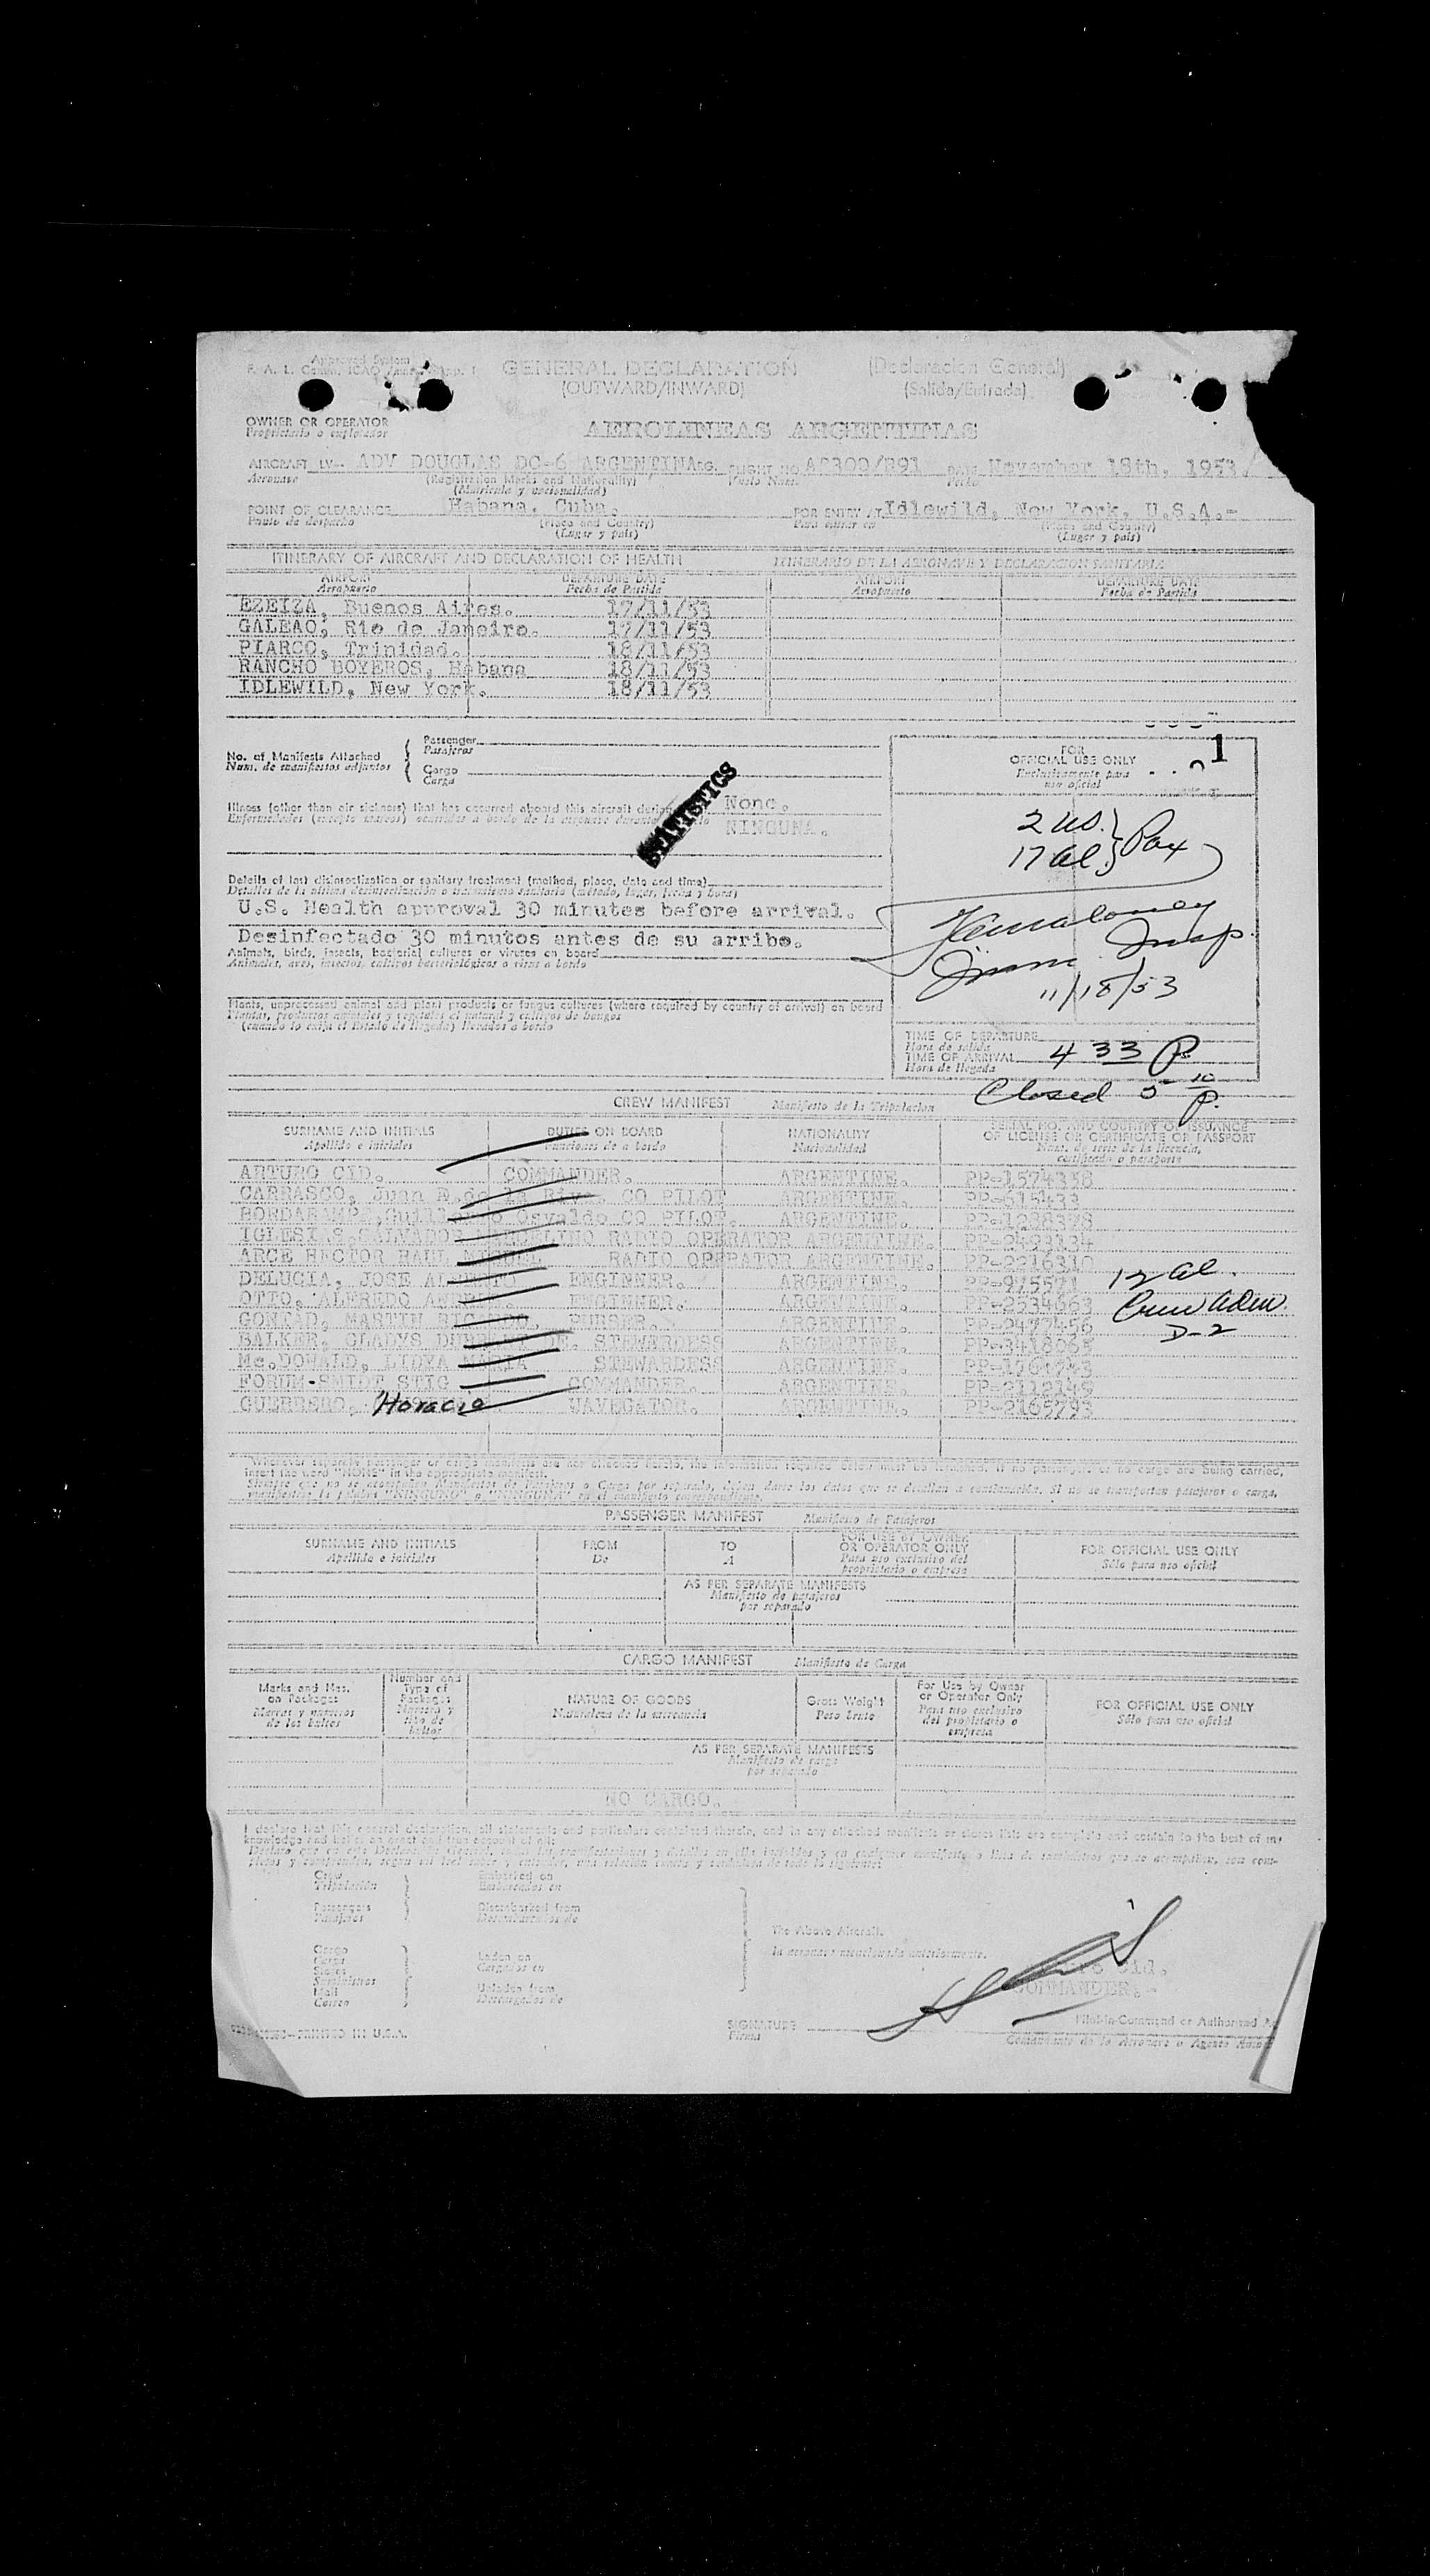 Approved System
F. A. L. Comm. ICAO
GENERAL DECLARATION (Declaracion General)
(OUTWARD/INWARD) (Salida/Entrada)
OWNER OR OPERATOR
Propietario o explotador
AEROLINEAS ARGENTINAS
AIRCRAFT LV- ADV DOUGLAS DC-6 ARGENTINA FLIGHT NO. November 18th, 1953.
Aeronave (Registration Marks and Nationality) Vuelo Num. Fecha
(Matricula y nacionalidad)
POINT OF CLEARANCE Habana, Cuba. FOR ENTRY AT Idlewild, New York, U.S.A.-
Punto de despacho (Place and Country) Para entrar en (Place and Country)
(Lugar y pais) (Lugar y pais)
ITINERARY OF AIRCRAFT AND DECLARATION OF HEALTH ITINERARIO DE LA AERONAVE Y DECLARACION SANITARIA
AIRPORT DEPARTURE DATE AIRPORT DEPARTURE DATE
Aeropuerto Fecha de Partida Aeropuerto Fecha de Partida
EZEIZA, Buenos Aires. 17/11/53
GALEAO, Rio de Janeiro. 17/11/53
PIARCO, Trinidad. 18/11/53
RANCHO BOYEROS, Habana 18/11/53
IDLEWILD, New York. 18/11/53
No. of Manifests Attached
Num. de manifiestos adjuntos
Passenger
Pasajeros
Cargo
Carga
STATISTICS
Illness (other than air sickness) that has occurred aboard this aircraft None.
Enfermedades (excepto mareos) ocurridas a bordo de la aeronave durante NINGUNA.
Details of last disinsectization or sanitary treatment (method, place, date and time)
Detalles de la ultima desinsectización o tratamiento sanitario (método, lugar, fecha y hora)
U.S. Health approval 30 minutes before arrival.
Desinfectado 30 minutos antes de su arribo.
Animals, birds, insects, bacterial cultures or viruses on board
Animales, aves, insectos, cultivos bacteriológicos o virus a bordo
Plants, unprocessed animal and plant products or fungus cultures (where required by country of arrival) on board
Plantas, productos animales y vegetales al natural y cultivos de hongos
(cuando lo exija el Estado de llegada) llevados a bordo
FOR
OFFICIAL USE ONLY 1
Exclusivamente para
uso oficial
2 US. } Pax
17 al }
Imm. Insp.
11/18/53
TIME OF DEPARTURE
Hora de salida
TIME OF ARRIVAL 4 33 P
Hora de llegada
Closed 5 10 P.
CREW MANIFEST Manifiesto de la Tripulacion
SURNAME AND INITIALS DUTIES ON BOARD NATIONALITY SERIAL NO. AND COUNTRY OF ISSUANCE
Apellido e iniciales Funciones de a bordo Nacionalidad OF LICENSE OR CERTIFICATE OR PASSPORT
Num. de serie de la licencia,
certificado o pasaporte
ARTURO CID. COMMANDER. ARGENTINE. PP-1574358
CARRASCO, Juan CO PILOT ARGENTINE. PP-615433
Osvaldo CO PILOT. ARGENTINE.
IGLESIAS, SALVADOR RADIO OPERATOR ARGENTINE. PP-2493134
ARCE HECTOR RAUL RADIO OPERATOR ARGENTINE. PP-2216310
DELUCIA, JOSE ENGINNER. ARGENTINE. PP-975571
OTTO, ALFREDO ENGINNER. ARGENTINE. PP-2534663
MARTIN PURSER. ARGENTINE. PP-2477456
BALKER, GLADYS STEWARDESS ARGENTINE. PP-3418065
Mc.DONALD, LIDYA STEWARDESS ARGENTINE.
FORUM-SMIDT STIG COMMANDER. ARGENTINE.
GUERRERO, Horacio NAVEGATOR. ARGENTINE. PP-2165793
12 al.
Crew adm
D-2
insert the word "NONE" in the appropriate manifest.
PASSENGER MANIFEST Manifiesto de Pasajeros
SURNAME AND INITIALS FROM TO FOR USE BY OWNER FOR OFFICIAL USE ONLY
Apellido e iniciales De A OR OPERATOR ONLY Sólo para uso oficial
Para uso exclusivo del
propietario o empresa
AS PER SEPARATE MANIFESTS
Manifiesto de pasajeros
por separado
CARGO MANIFEST Manifiesto de Carga
Marks and Nos. on Packages
Marcas y números de los bultos
Number and Type of Packages
Número y tipo de bultos
NATURE OF GOODS
Naturaleza de la mercancía
Gross Weight
Peso bruto
For Use by Owner or Operator Only
Para uso exclusivo del propietario o empresa
FOR OFFICIAL USE ONLY
Sólo para uso oficial
AS PER SEPARATE MANIFESTS
Manifiesto de carga
por separado
NO CARGO.
I declare that this general declaration, all statements and particulars contained therein, and in any attached manifests or stores lists are complete and contain to the best of my
knowledge and belief an exact and true account of all:
Crew
Tripulación
Embarked on
Embarcados en
Passengers
Pasajeros
Disembarked from
Desembarcados de
The Above Aircraft.
la aeronave mencionada anteriormente.
Cargo
Carga
Stores
Suministros
Mail
Correo
Laden on
Cargados en
Unladen from
Descargados de
Cid.
COMMANDER.-
SIGNATURE
Firma
Pilot-in-Command or Authorized
Comandante de la Aeronave o Agente
PRINTED IN U.S.A.